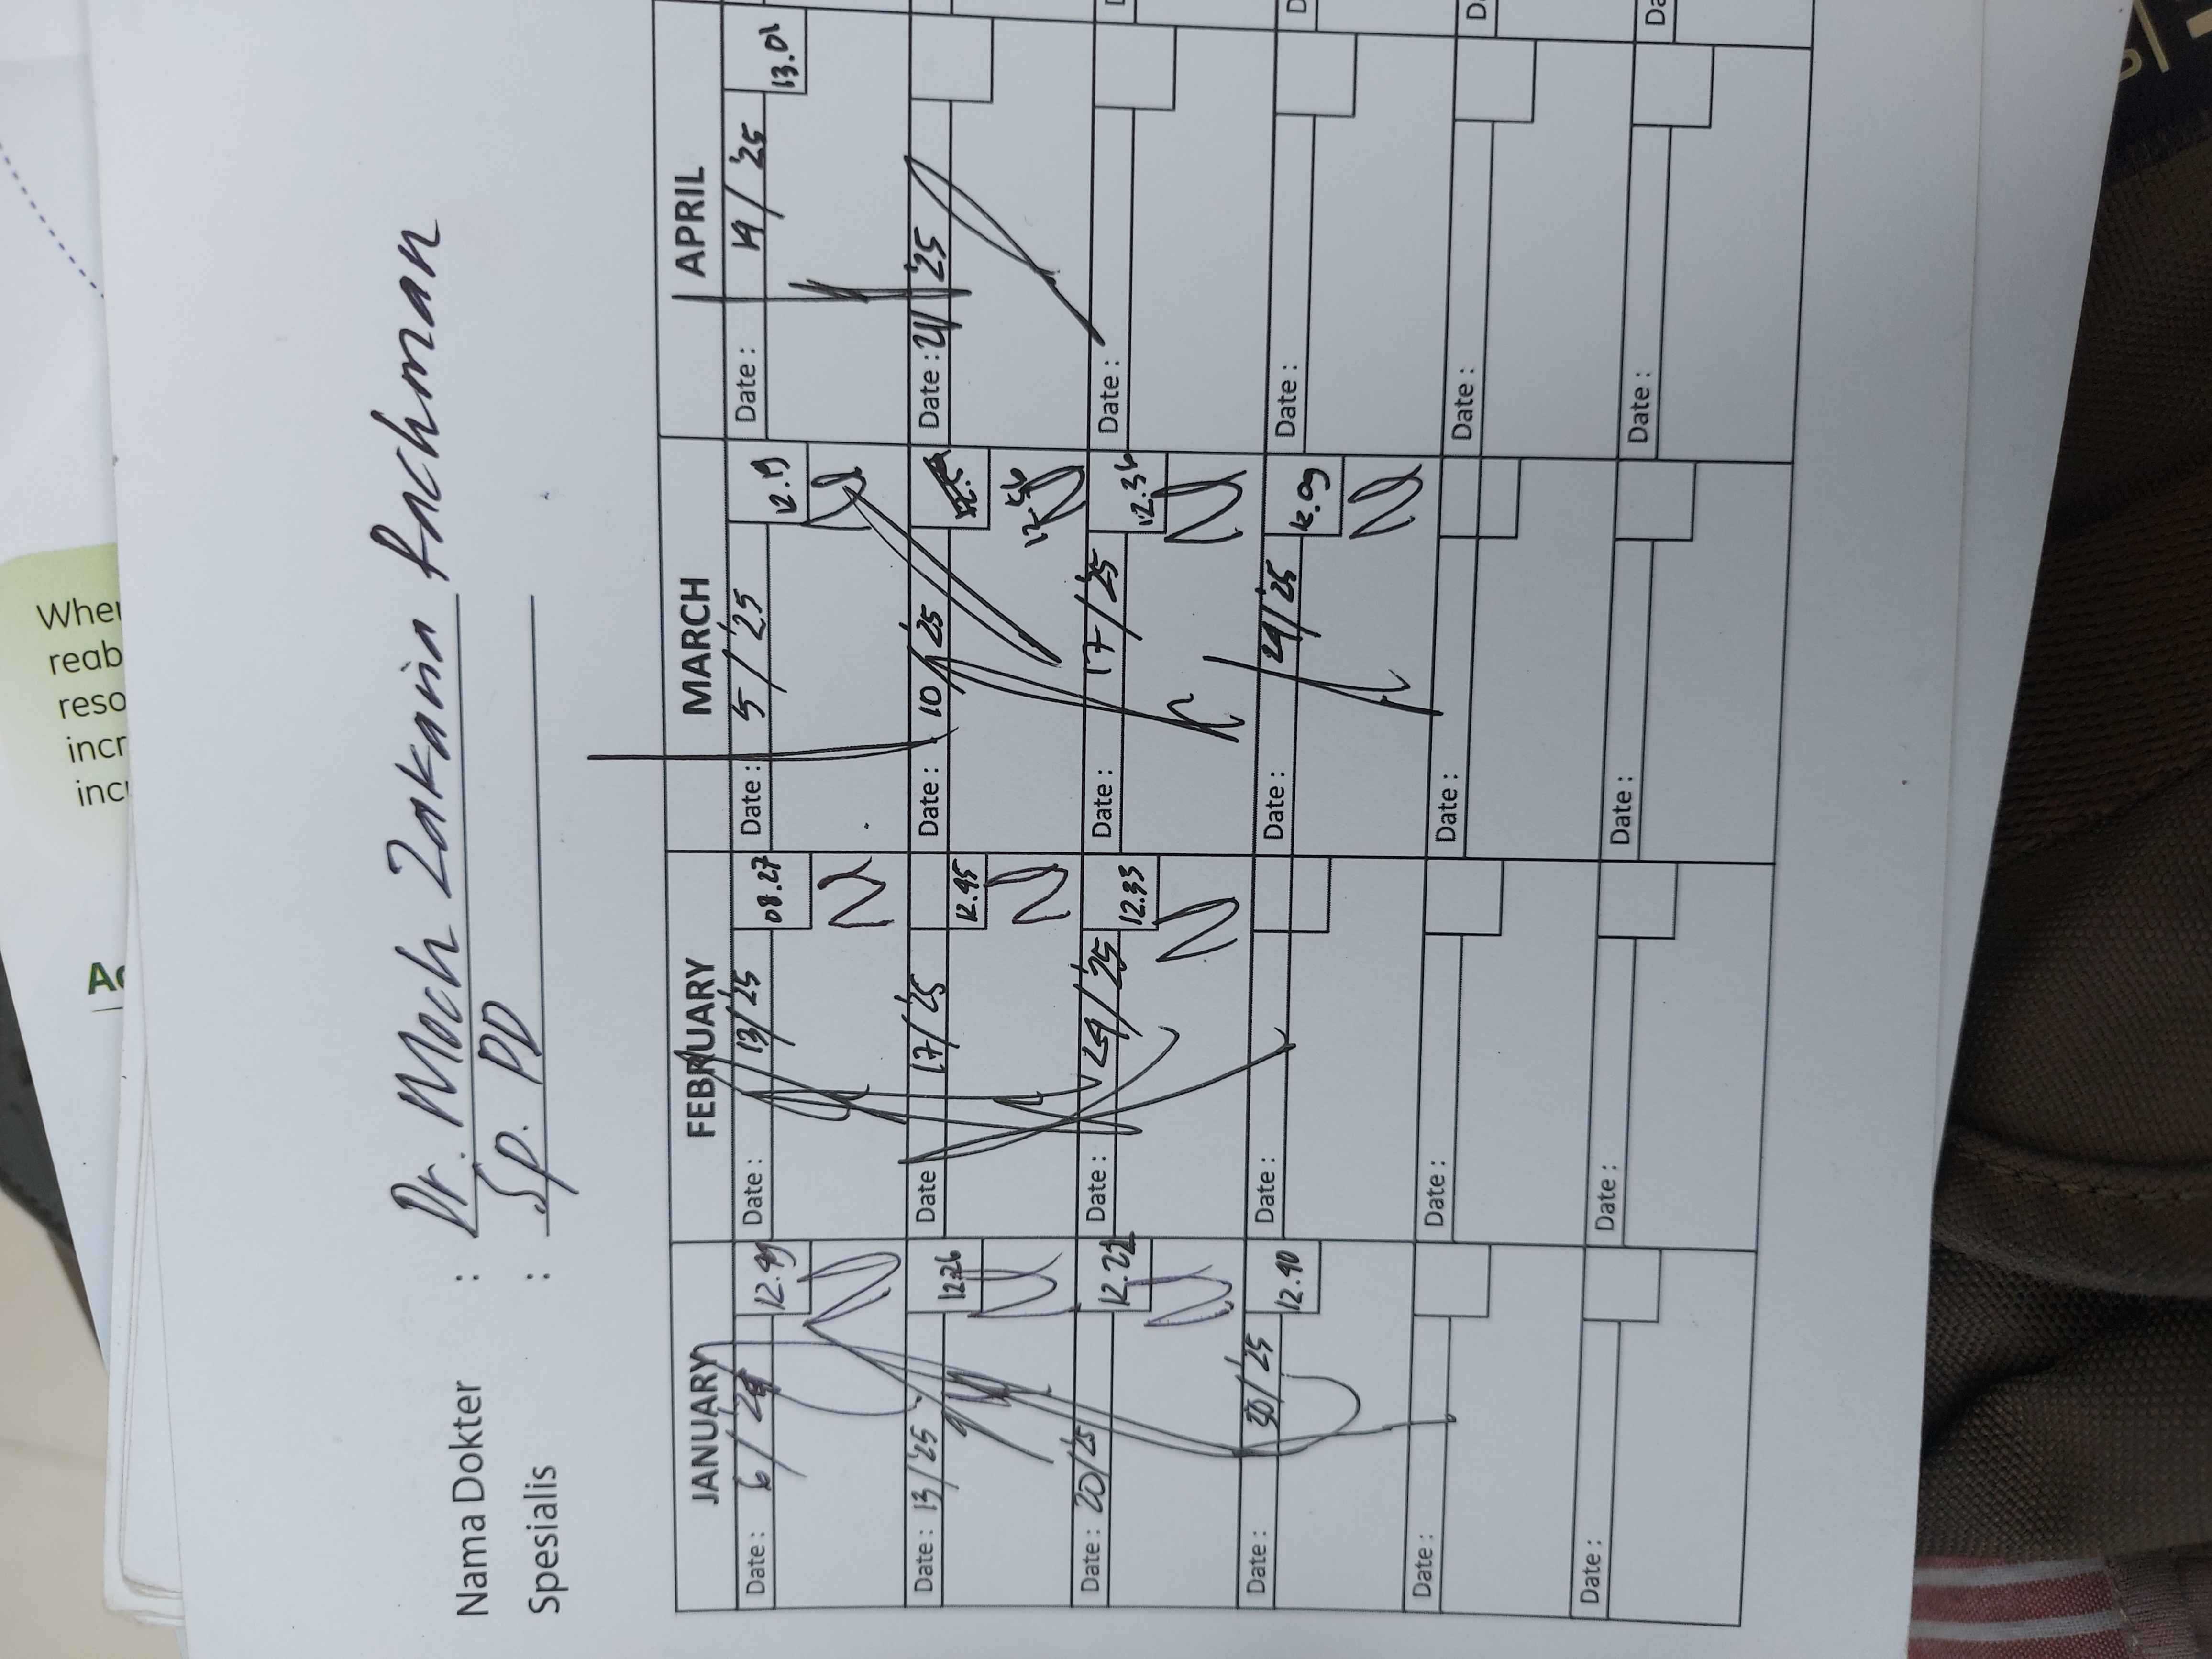 Nama Dokter : Dr. Moch Zakaria Rachman
Spesialis : Sp. PD
JANUARY FEBRUARY MARCH APRIL
Date : 6 / 12.49 Date : 13/'25 08.27 Date : 5 / '25 12.19 Date : 14 / '25 13.01
Date : 13/'25 12.26 Date 17/'25 12.45 Date : 10/'25 12.56 Date : 21/'25
Date : 20/'25 12.22 Date : 24/'25 12.33 Date : 17/'25 12.36 Date :
Date : 30/'25 12.40 Date : Date : 24/'25 12.09 Date :
Date : Date : Date : Date :
Date : Date : Date : Date :
Wher
reab
reso
incr
inc